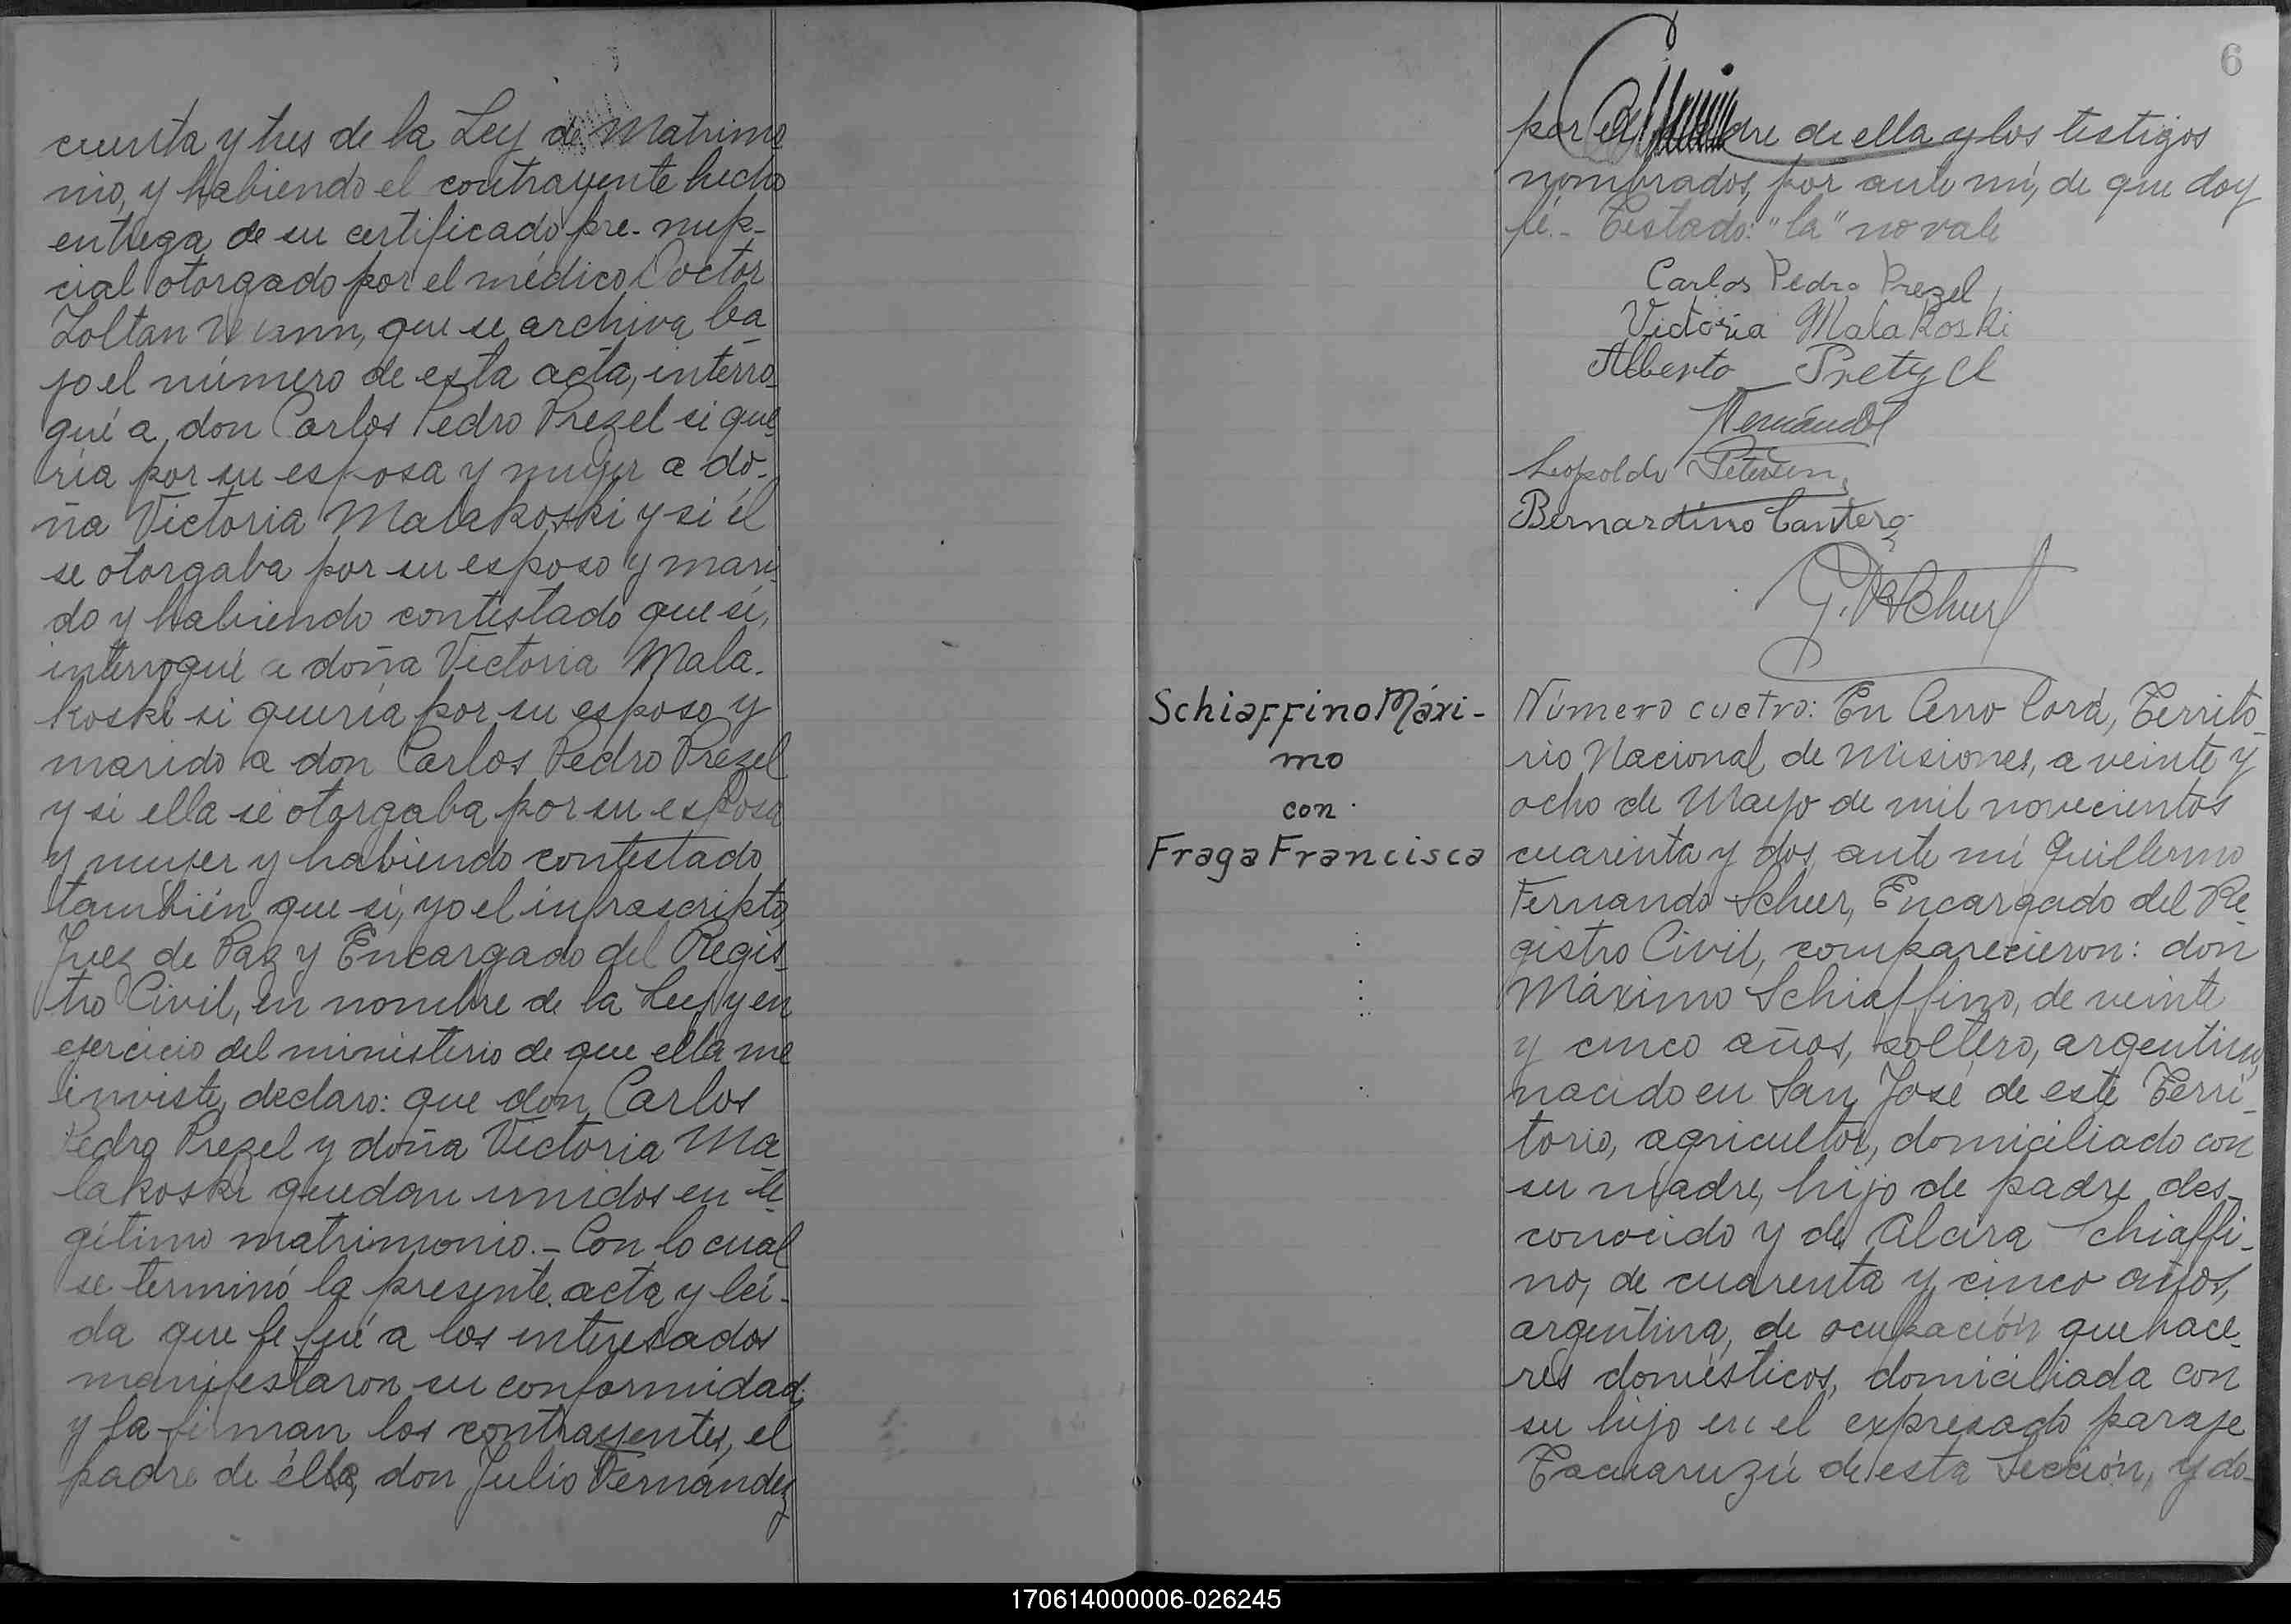 cuenta y tres de la Ley de Matrimo
nio, y habiendo el contrayente hecho
entrega de su certificado pre-nup-
cial otorgado por el médico Doctor
Zoltan que se archiva ba
jo el número de esta acta, interro-
gué a don Carlos Pedro Prezel si que
ría por su esposa y mujer a do-
ña Victoria Malakoski y si él
se otorgaba por su esposo y mari
do y habiendo contestado que sí,
interrogué a doña Victoria Mala-
koski si quería por su esposo y
marido a don Carlos Pedro Prezel
y si ella se otorgaba por su esposa
y mujer y habiendo contestado
también que sí, yo el infrascripto,
Juez de Paz y Encargado del Regis-
tro Civil, en nombre de la Ley y en
ejercicio del ministerio de que ella me
inviste, declaro: que don Carlos
Pedro Prezel y doña Victoria Ma
lakoski quedan unidos en le
gítimo matrimonio.- Con lo cual
se terminó la presente acta y leí-
da que le fué a los interesados
manifestaron su conformidad,
y la firman los contrayentes, el
padre de élla, don Julio Fernández
6
por el padre de ella y los testigos
nombrados, por ante mí, de que doy
fé.- Testado: "la" no vale
Carlos Pedro Prezel
Victoria Malakoski
Alberto Pretzel
Fernández
Leopoldo Petersen
Bernardino Cantero
Schiaffino Máxi-
mo
con
Fraga Francisca
Número cuatro: En Cerro Corá, Territo
rio Nacional de Misiones, a veinte y
ocho de Mayo de mil novecientos
cuarenta y dos, ante mí Guillermo
Fernando Scheer, Encargado del Re
gistro Civil, comparecieron: don
Máximo Schiaffino, de veinte
y cinco años, soltero, argentino,
nacido en San José de este Terri-
torio, agricultor, domiciliado con
su madre, hijo de padre des-
conocido y de Alcira Schiaffi-
no, de cuarenta y cinco años,
argentina, de ocupación quehace-
res domésticos, domiciliada con
su hijo en el expresado paraje
Tacuaruzú de esta Sección, y do-
170614000006-026245